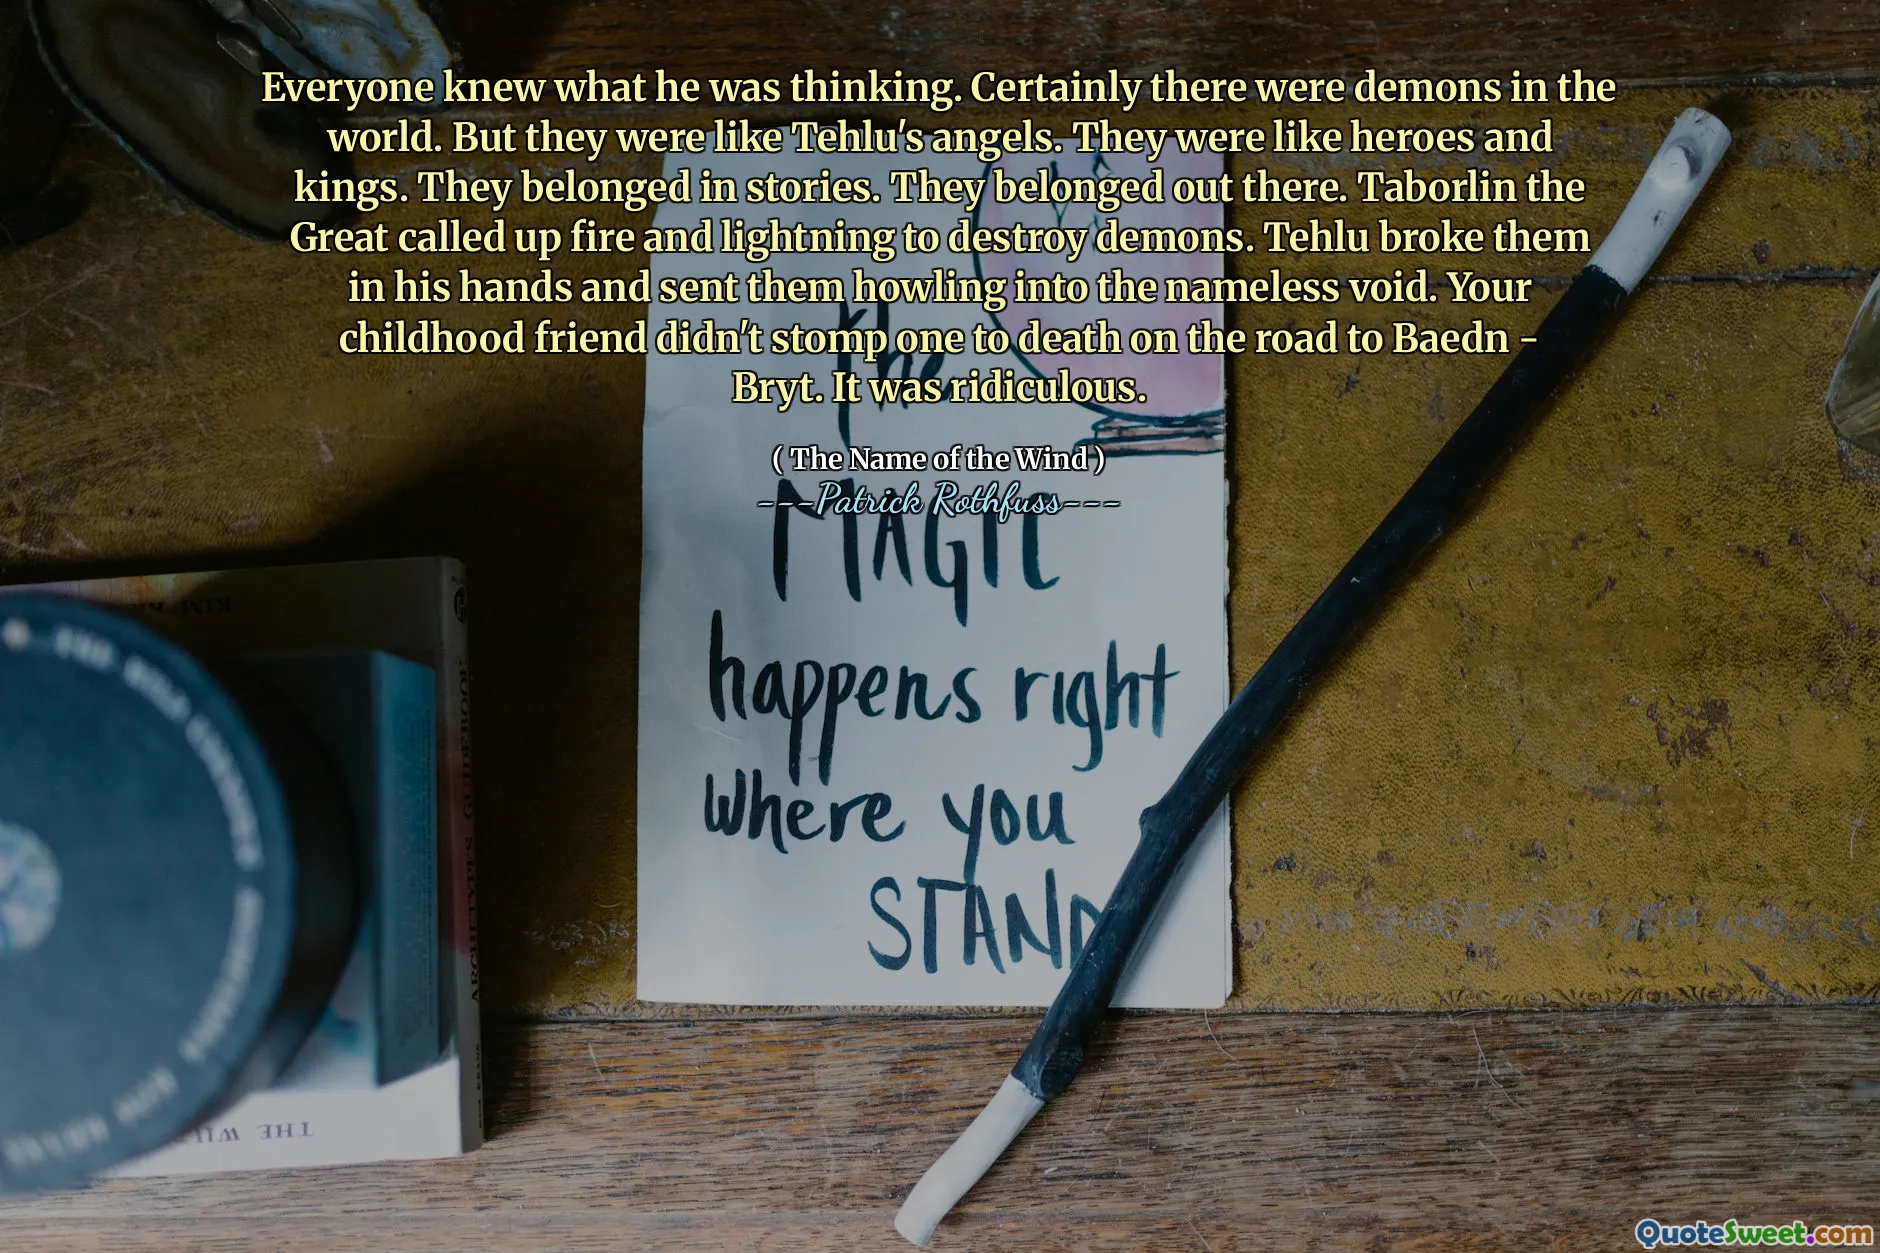 Everyone knew what he was thinking. Certainly there were demons in the
world. But they were like Tehlu's angels. They were like heroes and
kings. They belonged in stories. They belonged out there. Taborlin the
Great called up fire and lightning to destroy demons. Tehlu broke them
in his hands and sent them howling into the nameless void. Your
childhood friend didn't stomp one to death on the road to Baedn -
Bryt. It was ridiculous.
( The Name of the Wind )
---Patrick Rothfuss---
the
MAGIC
happens right
where you
STAND
ARCHETYPES GUIDEBOOK
THE WIL
QuoteSweet.com